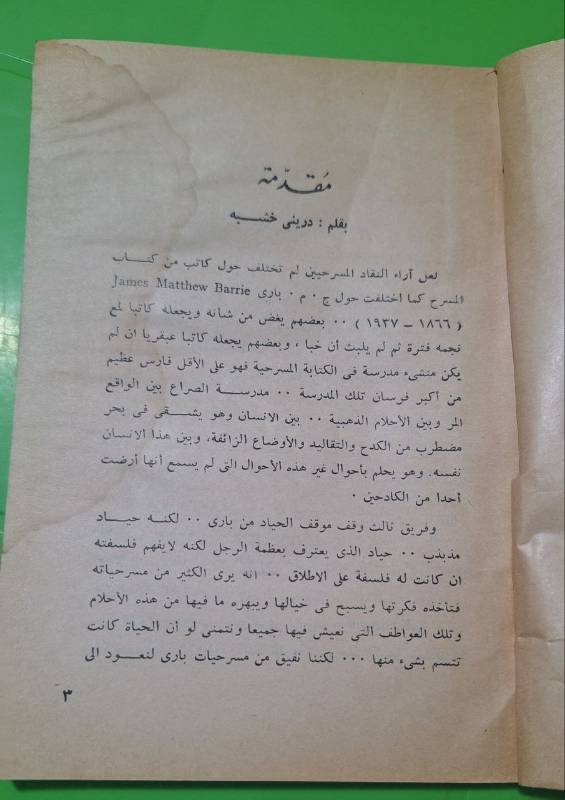 مقدّمة
بقلم : درينى خشبه
لعل آراء النقاد المسرحيين لم تختلف حول كاتب من كتاب
المسرح كما اختلفت حول ج ٠ م ٠ بارى James Matthew Barrie
( ١٨٦٦ – ١٩٣٧ ) ٠٠ بعضهم يغض من شانه ويجعله كاتبا لمع
نجمه فترة ثم لم يلبث أن خبا ، وبعضهم يجعله كاتبا عبقريا ان لم
يكن منشىء مدرسة فى الكتابة المسرحية فهو على الأقل فارس عظيم
من أكبر فرسان تلك المدرسة ٠٠ مدرســة الصراع بين الواقع
المر وبين الأحلام الذهبية ٠٠ بين الانسان وهو يشــقى فى بحر
مضطرب من الكدح والتقاليد والأوضاع الزائفة، وبين هذا الانسان
نفسه، وهو يحلم بأحوال غير هذه الأحوال التى لم يسمع أنها أرضت
أحدا من الكادحين ٠
وفريق ثالث وقف موقف الحياد من بارى ٠٠ لكنــه حيــاد
مذبذب ٠٠ حياد الذى يعترف بعظمة الرجل لكنه لايفهم فلسفته
ان كانت له فلسفة على الاطلاق ٠٠ انه يرى الكثير من مسرحياته
فتأخذه فكرتها ويسبح فى خيالها ويبهره ما فيها من هذه الأحلام
وتلك العواطف التى نعيش فيها جميعا ونتمنى لو أن الحياة كانت
تتسم بشىء منها ٠٠٠ لكننا نفيق من مسرحيات بارى لنعــود الى
٣